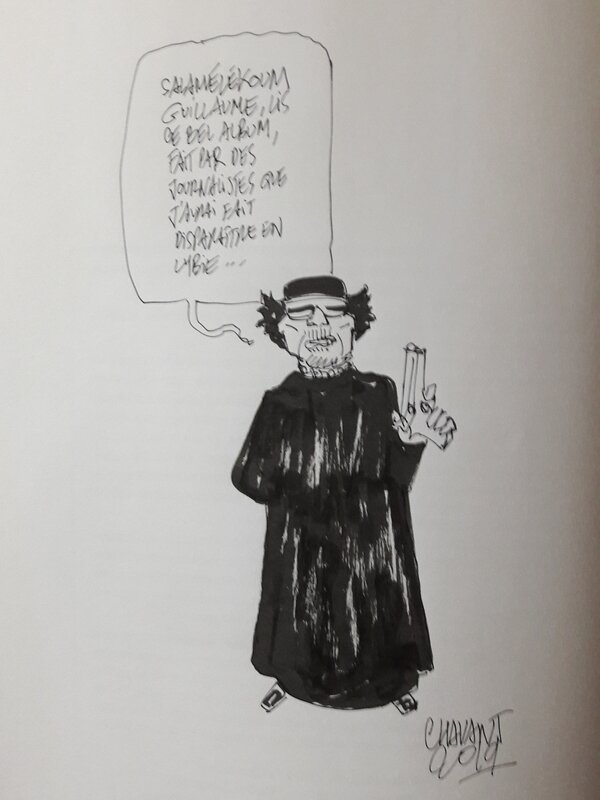 SALAMÉLÉKOUM
GUILLAUME, LIS
CE BEL ALBUM,
FAIT PAR DES
JOURNALISTES QUE
J'AURAI FAIT
DISPARAÎTRE EN
LYBIE...
CHAVANT
2019